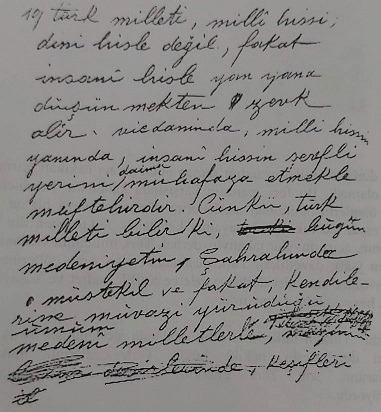 19 türk milleti, millî hissi;
dinî hisle değil, fakat
insanî hisle yan yana
düşünmekten zevk
alır. vicdanında, milli hissin
yanında, insanî hissin şerefli
yerini daima muhafaza etmekle
müftehirdir. Çünkü, türk
milleti bilir ki, bugün
medeniyetin, Şahrahında
müstekil ve fakat, kendile-
rine müvazi yürüdüğü
umum
medenî milletlerle,
, keşifleri